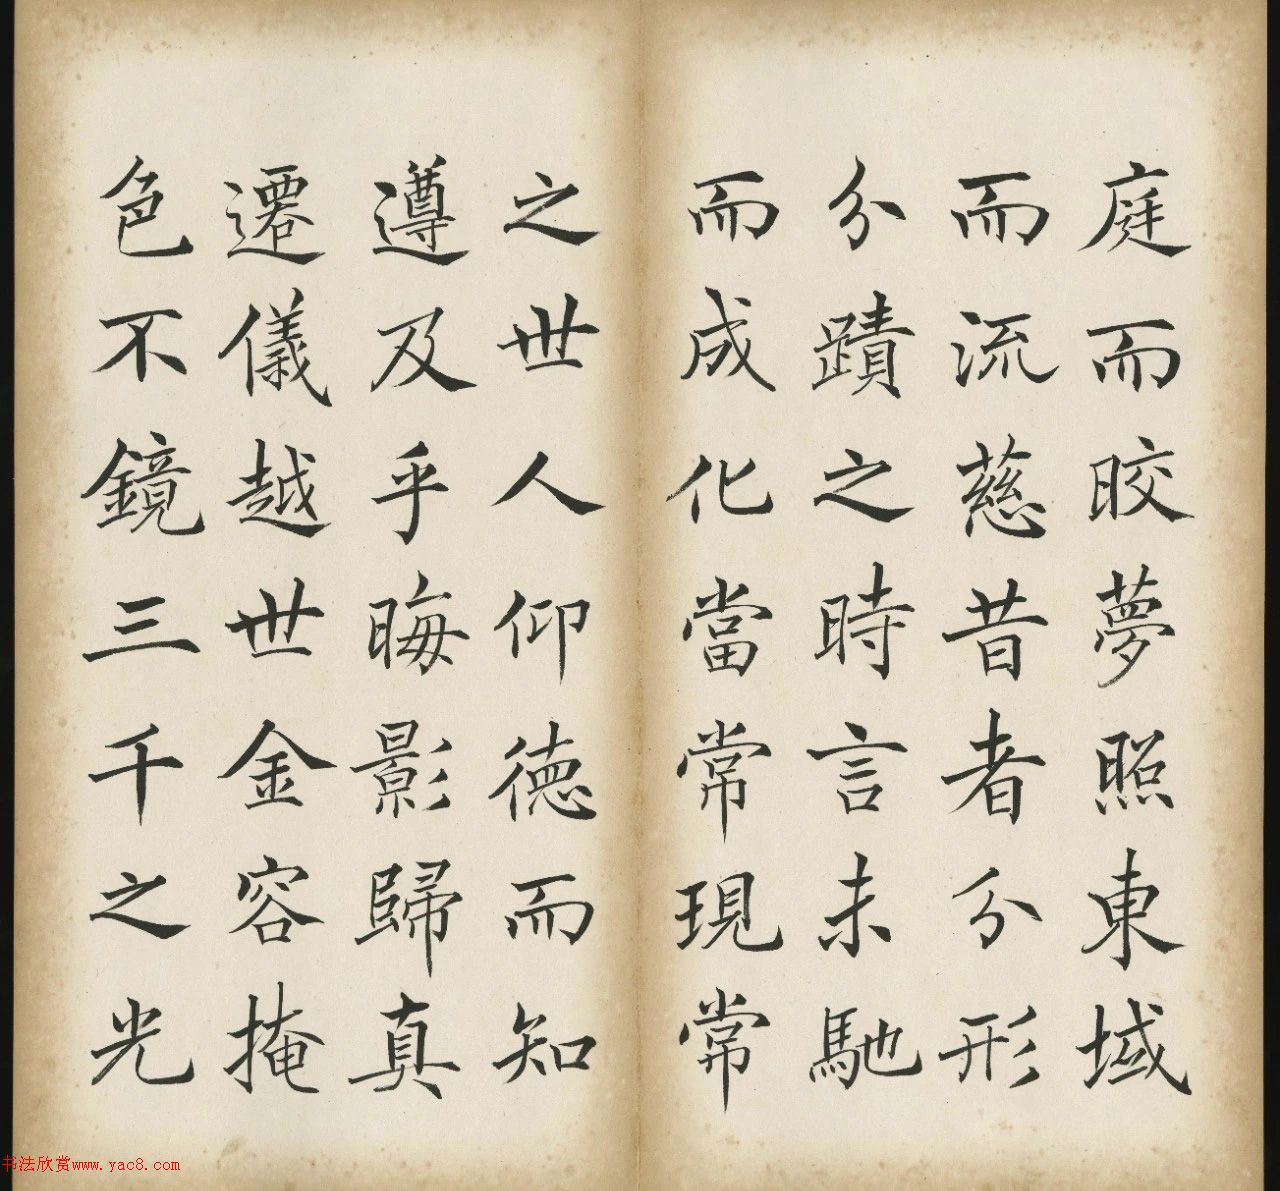 庭而晈夢照東域
而流慈昔者分形
分蹟之時言未馳
而成化當常現常
之世人仰德而知
遵及乎晦影歸真
遷儀越世金容掩
色不鏡三千之光
书法欣赏www.yac8.com